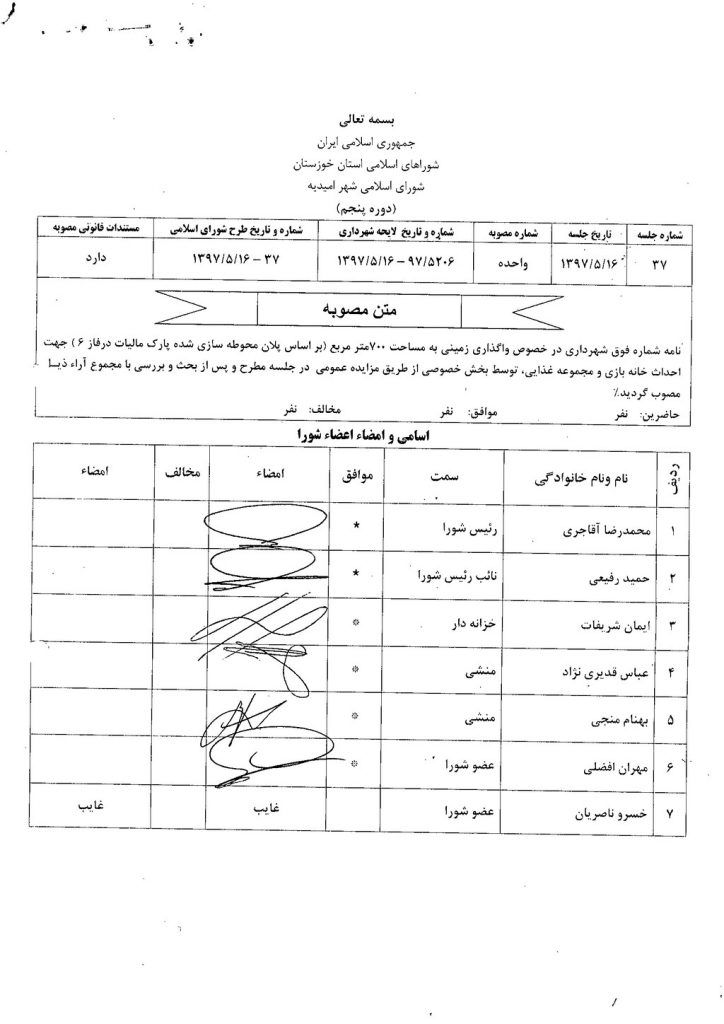 بسمه تعالی
جمهوری اسلامی ایران
شوراهای اسلامی استان خوزستان
شورای اسلامی شهر امیدیه
(دوره پنجم)
شماره جلسه تاریخ جلسه شماره مصوبه شماره و تاریخ لایحه شهرداری شماره و تاریخ طرح شورای اسلامی مستندات قانونی مصوبه
۳۷ ۱۳۹۷/۵/۱۶ واحده ۹۷/۵۲۰۶ – ۱۳۹۷/۵/۱۶ ۳۷ – ۱۳۹۷/۵/۱۶ دارد
متن مصوبه
نامه شماره فوق شهرداری در خصوص واگذاری زمینی به مساحت ۷۰۰متر مربع (بر اساس پلان محوطه سازی شده پارک مالیات درفاز ۶ ) جهت
احداث خانه بازی و مجموعه غذایی، توسط بخش خصوصی از طریق مزایده عمومی در جلسه مطرح و پس از بحث و بررسی با مجموع آراء ذیـا
مصوب گردید.٪
حاضرین: نفر موافق: نفر مخالف: نفر
اسامی و امضاء اعضاء شورا
ردیف نام ونام خانوادگی سمت موافق امضاء مخالف امضاء
۱ محمدرضا آقاجری رئیس شورا *
۲ حمید رفیعی نائب رئیس شورا *
۳ ایمان شریفات خزانه دار *
۴ عباس قدیری نژاد منشی *
۵ بهنام منجی منشی *
۶ مهران افضلی عضو شورا *
۷ خسرو ناصریان عضو شورا غایب غایب